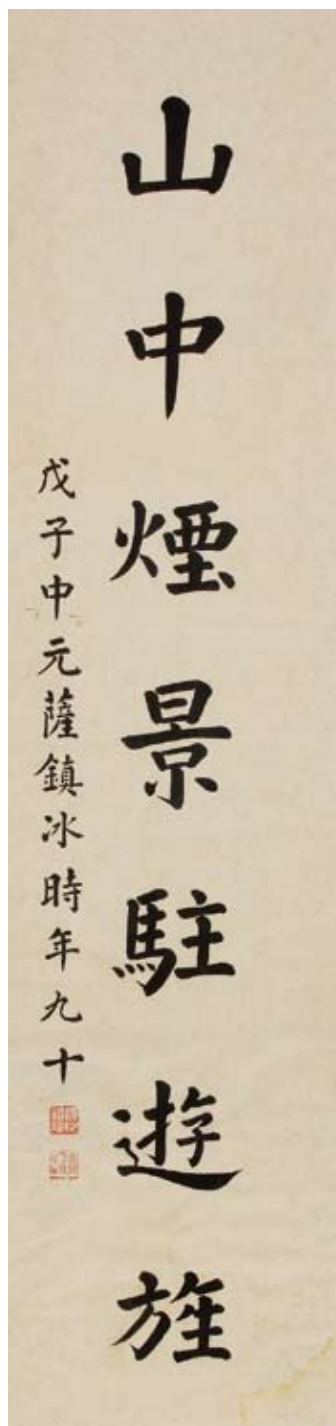 山中煙景駐遊旌
戊子中元薩鎮冰時年九十